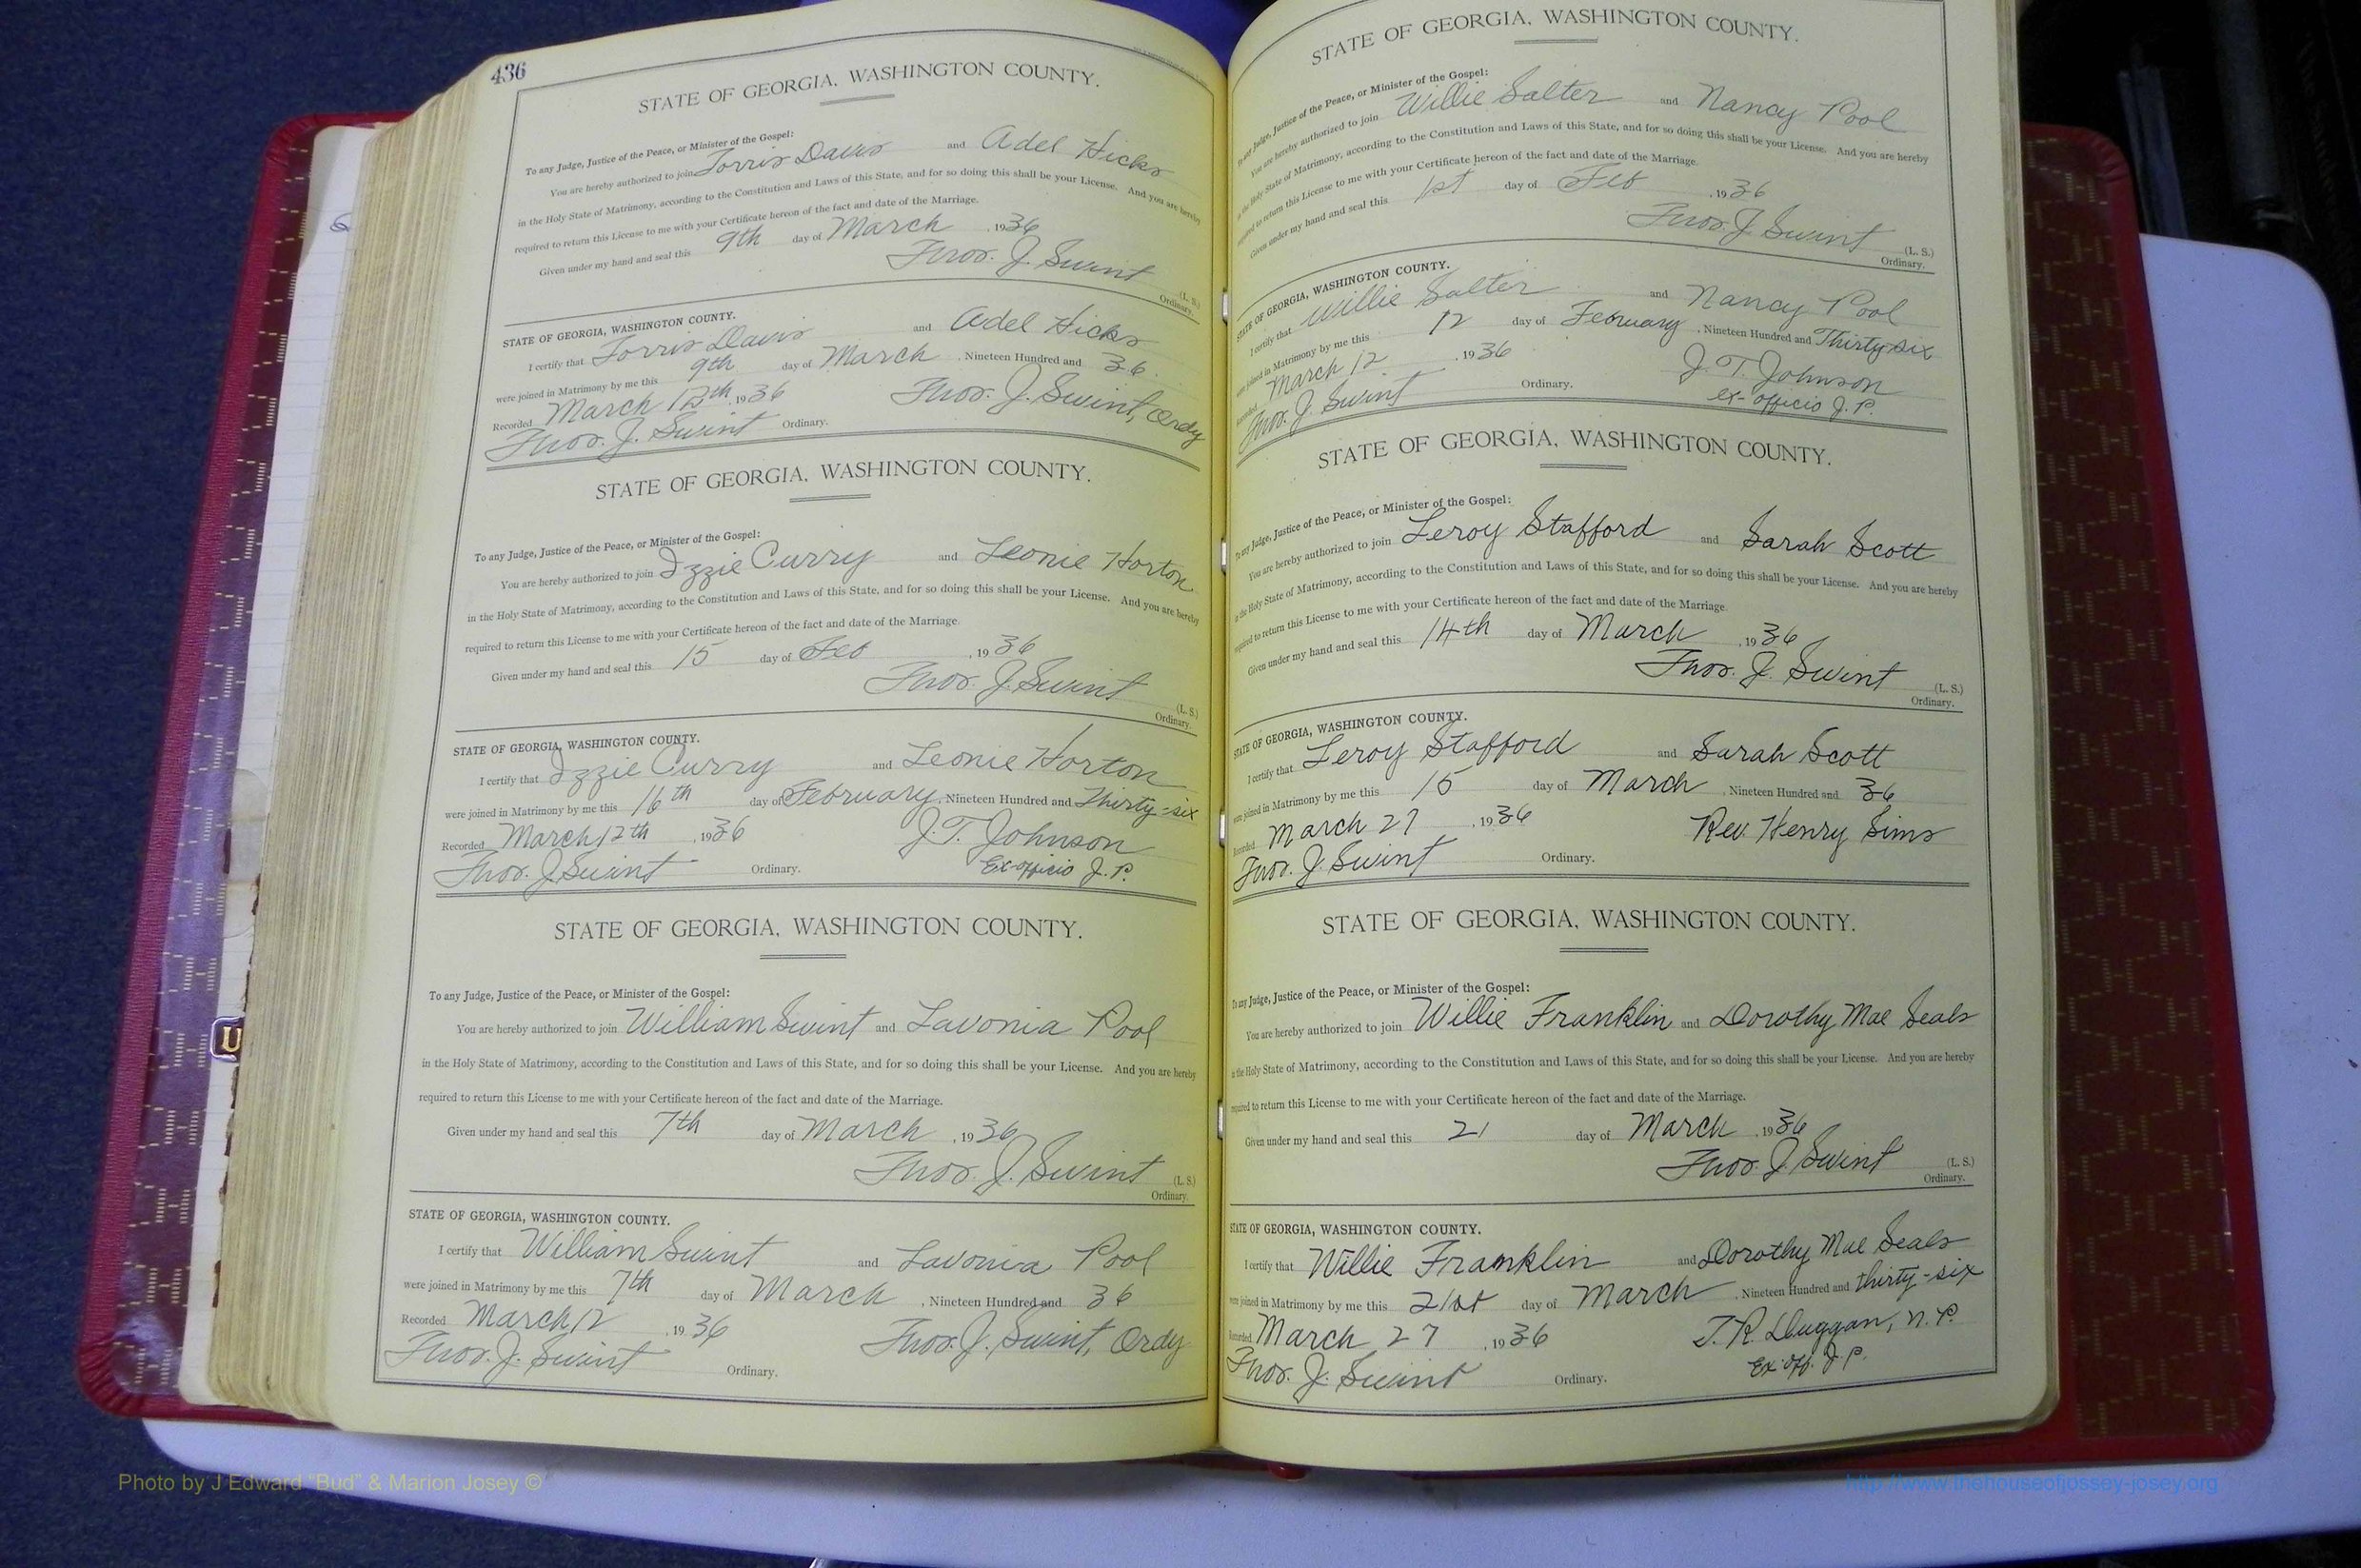 436
STATE OF GEORGIA, WASHINGTON COUNTY.
To any Judge, Justice of the Peace, or Minister of the Gospel:
You are hereby authorized to join Torris Davis and Adel Hicks
in the Holy State of Matrimony, according to the Constitution and Laws of this State, and for so doing this shall be your License. And you are hereby
required to return this License to me with your Certificate hereon of the fact and date of the Marriage.
Given under my hand and seal this 9th day of March , 1936
Thos. J. Swint (L. S.)
Ordinary.
STATE OF GEORGIA, WASHINGTON COUNTY.
I certify that Torris Davis and Adel Hicks
were joined in Matrimony by me this 9th day of March , Nineteen Hundred and 36.
Recorded March 12th, 1936 Thos. J. Swint, Ordy
Thos. J. Swint Ordinary.
STATE OF GEORGIA, WASHINGTON COUNTY.
To any Judge, Justice of the Peace, or Minister of the Gospel:
You are hereby authorized to join Izzie Curry and Leonie Horton
in the Holy State of Matrimony, according to the Constitution and Laws of this State, and for so doing this shall be your License. And you are hereby
required to return this License to me with your Certificate hereon of the fact and date of the Marriage.
Given under my hand and seal this 15 day of Feb , 1936
Thos. J. Swint (L. S.)
Ordinary.
STATE OF GEORGIA, WASHINGTON COUNTY.
I certify that Izzie Curry and Leonie Horton
were joined in Matrimony by me this 16th day of February, Nineteen Hundred and Thirty-six
Recorded March 12th , 1936 J. T. Johnson
Thos. J. Swint Ordinary. Ex-officio J. P.
STATE OF GEORGIA, WASHINGTON COUNTY.
To any Judge, Justice of the Peace, or Minister of the Gospel:
You are hereby authorized to join William Swint and Lavonia Pool
in the Holy State of Matrimony, according to the Constitution and Laws of this State, and for so doing this shall be your License. And you are hereby
required to return this License to me with your Certificate hereon of the fact and date of the Marriage.
Given under my hand and seal this 7th day of March , 1936
Thos. J. Swint (L. S.)
Ordinary.
STATE OF GEORGIA, WASHINGTON COUNTY.
I certify that William Swint and Lavonia Pool
were joined in Matrimony by me this 7th day of March , Nineteen Hundred and 36
Recorded March 12 , 1936 Thos. J. Swint, Ordy
Thos. J. Swint Ordinary.
STATE OF GEORGIA, WASHINGTON COUNTY.
To any Judge, Justice of the Peace, or Minister of the Gospel:
You are hereby authorized to join Willie Salter and Nancy Pool
in the Holy State of Matrimony, according to the Constitution and Laws of this State, and for so doing this shall be your License. And you are hereby
required to return this License to me with your Certificate hereon of the fact and date of the Marriage.
Given under my hand and seal this 1st day of Feb , 1936
Thos. J. Swint (L. S.)
Ordinary.
STATE OF GEORGIA, WASHINGTON COUNTY.
I certify that Willie Salter and Nancy Pool
were joined in Matrimony by me this 12 day of February , Nineteen Hundred and Thirty-six
Recorded March 12 , 1936 J. T. Johnson
Thos. J. Swint Ordinary. ex-officio J. P.
STATE OF GEORGIA, WASHINGTON COUNTY.
To any Judge, Justice of the Peace, or Minister of the Gospel:
You are hereby authorized to join Leroy Stafford and Sarah Scott
in the Holy State of Matrimony, according to the Constitution and Laws of this State, and for so doing this shall be your License. And you are hereby
required to return this License to me with your Certificate hereon of the fact and date of the Marriage.
Given under my hand and seal this 14th day of March , 1936
Thos. J. Swint (L. S.)
Ordinary.
STATE OF GEORGIA, WASHINGTON COUNTY.
I certify that Leroy Stafford and Sarah Scott
were joined in Matrimony by me this 15 day of March , Nineteen Hundred and 36
Recorded March 27 , 1936 Rev. Henry Sims
Thos. J. Swint Ordinary.
STATE OF GEORGIA, WASHINGTON COUNTY.
To any Judge, Justice of the Peace, or Minister of the Gospel:
You are hereby authorized to join Willie Franklin and Dorothy Mae Seals
in the Holy State of Matrimony, according to the Constitution and Laws of this State, and for so doing this shall be your License. And you are hereby
required to return this License to me with your Certificate hereon of the fact and date of the Marriage.
Given under my hand and seal this 21 day of March , 1936
Thos. J. Swint (L. S.)
Ordinary.
STATE OF GEORGIA, WASHINGTON COUNTY.
I certify that Willie Franklin and Dorothy Mae Seals
were joined in Matrimony by me this 21st day of March , Nineteen Hundred and thirty-six
Recorded March 27 , 1936 T. R. Duggan, N. P.
Thos. J. Swint Ordinary. Ex off. J. P.
Photo by J Edward "Bud" & Marion Josey ©
http://www.thehouseofjossey-josey.org